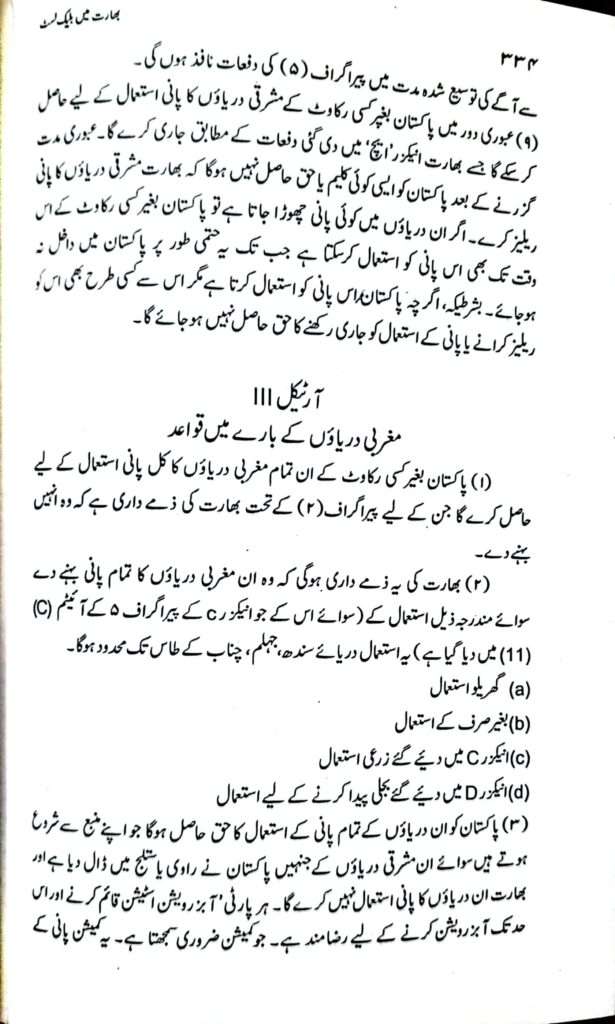 بھارت میں بلیک لسٹ
۳۳۴
سے آگے کی توسیع شدہ مدت میں پیراگراف (۵) کی دفعات نافذ ہوں گی۔
(۹) عبوری دور میں پاکستان بغیر کسی رکاوٹ کے مشرقی دریاؤں کا پانی استعمال کے لیے حاصل
کرسکے گا جسے بھارت انیکزر 'ایچ' میں دی گئی دفعات کے مطابق جاری کرے گا۔ عبوری مدت
گزرنے کے بعد پاکستان کو ایسی کوئی کلیم یا حق حاصل نہیں ہوگا کہ بھارت مشرقی دریاؤں کا پانی
ریلیز کرے۔ اگر ان دریاؤں میں کوئی پانی چھوڑا جاتا ہے تو پاکستان بغیر کسی رکاوٹ کے اس
وقت تک بھی اس پانی کو استعمال کرسکتا ہے جب تک یہ حتمی طور پر پاکستان میں داخل نہ
ہوجائے۔ بشرطیکہ، اگرچہ پاکستان اس پانی کو استعمال کرتا ہے مگر اس سے کسی طرح بھی اس کو
ریلیز کرانے یا پانی کے استعمال کو جاری رکھنے کا حق حاصل نہیں ہوجائے گا۔
آرٹیکل III
مغربی دریاؤں کے بارے میں قواعد
(۱) پاکستان بغیر کسی رکاوٹ کے ان تمام مغربی دریاؤں کا کل پانی استعمال کے لیے
حاصل کرے گا جن کے لیے پیراگراف (۲) کے تحت بھارت کی ذمے داری ہے کہ وہ انہیں
بہنے دے۔
(۲) بھارت کی یہ ذمے داری ہوگی کہ وہ ان مغربی دریاؤں کا تمام پانی بہنے دے
سوائے مندرجہ ذیل استعمال کے (سوائے اس کے جو انیکزر c کے پیراگراف ۵ کے آئیٹم (C)
(11) میں دیا گیا ہے) یہ استعمال دریائے سندھ، جہلم، چناب کے طاس تک محدود ہوگا۔
(a) گھریلو استعمال
(b) بغیر صرف کے استعمال
(c) انیکزر C میں دیئے گئے زرعی استعمال
(d) انیکزر D میں دیئے گئے بجلی پیدا کرنے کے لیے استعمال
(۳) پاکستان کو ان دریاؤں کے تمام پانی کے استعمال کا حق حاصل ہوگا جو اپنے منبع سے شروع
ہوتے ہیں سوائے ان مشرقی دریاؤں کے جنہیں پاکستان نے راوی یا ستلج میں ڈال دیا ہے اور
بھارت ان دریاؤں کا پانی استعمال نہیں کرے گا۔ ہر پارٹی' آبزرویشن اسٹیشن قائم کرنے اور اس
حد تک آبزرویشن کرنے کے لیے رضامند ہے۔ جو کمیشن ضروری سمجھتا ہے۔ یہ کمیشن پانی کے